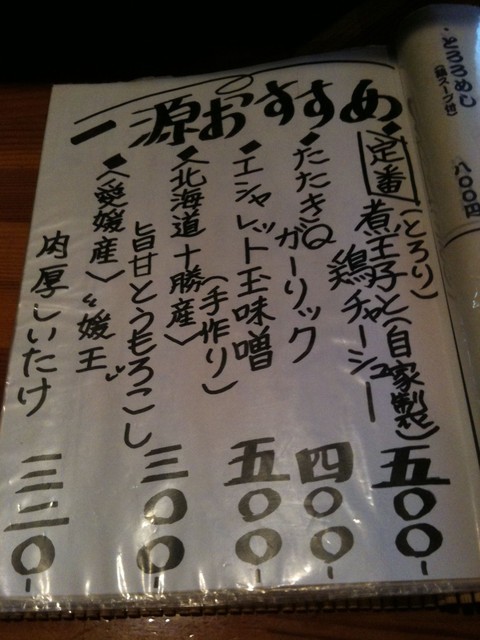 ・とろろめし
スープ付
八〇〇円
一源おすすめ
◆定番(とろり)
煮玉子と(自家製)
鶏チャーシュー
五〇〇-
◆たたきQ
ガーリック
四〇〇-
◆エシャレット玉味噌
(手作り)
五〇〇-
◆〈北海道十勝産〉
旨甘とうもろこし
三〇〇-
◆〈愛媛産〉〝媛王〟
肉厚しいたけ
三三〇-